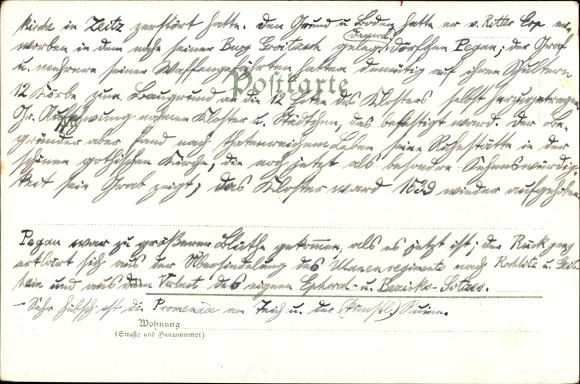 Kirche in Zeitz zerstört hatte. Den Grund u. Boden hatte er v. Ritter Exp er-
worben in dem nahe seiner Burg Groitzsch geleg. Dörfchen Pegau; der Graf
u. mehrere seiner Waffengefährten haben demütig auf ihren Schultern
Postkarte
12 Körbe zum Baugrund an die 12 Ecken des Klosters selbst herzugetragen
Ihr. Aufschwung nahmen Kloster u. Städtchen, das befestigt ward. Der Be-
gründer aber fand nach thatenreichem Leben seine Ruhestätte in der
schönen gothischen Kirche, die noch jetzt als besondre Sehenswürdig-
keit sein Grab zeigt; das Kloster ward 1539 wieder aufgehoben.
Pegau war zu größerer Blüthe gekommen, als es jetzt ist; der Rückgang
erklärt sich aus der Übersiedelung des Ulanenregiments nach Rochlitz u. Geit-
hain und aus dem Verlust des eigenen Ephoral- u. Bezirks-Sitzes.
- Sehr hübsch ist die Promenade am Teich u. der (künstl.) Ruine.
Wohnung
(Straße und Hausnummer)